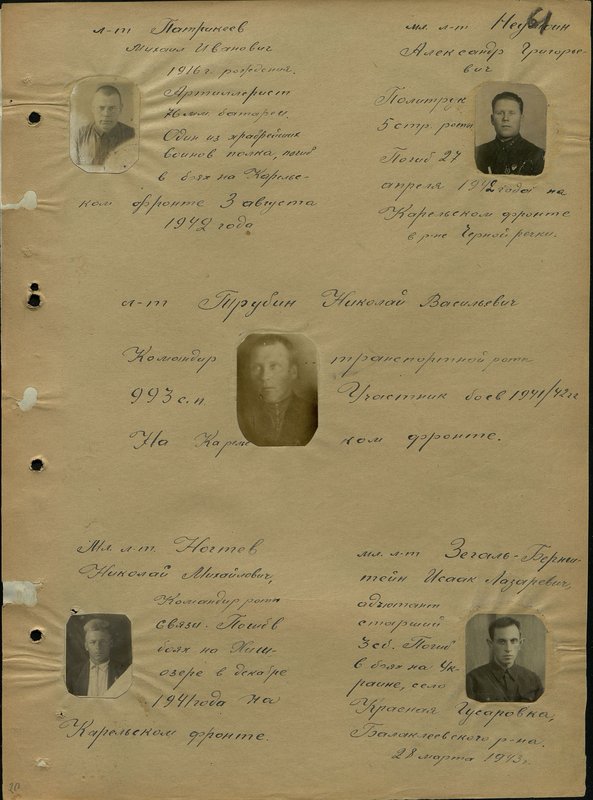 61
л-т Патрикеев
Михаил Иванович
1916 г. рождения.
Артиллерист
76 мм батареи.
Один из храбрейших
воинов полка, погиб
в боях на Карельс-
ком фронте 3 августа
1942 года
мл. л-т
Александр Григорье-
вич
Политрук
5 стр. роты
Погиб 27
апреля 1942 года на
Карельском фронте
в р-не Черной речки.
л-т Трубин Николай Васильевич
Командир транспортной роты
993 с.п. Участник боев 1941/42 гг
На Карельс ком фронте.
Мл. л-т Ногтев
Николай Михайлович,
Командир роты
связи. Погиб в
боях на Киш-
озере в декабре
1941 года на
Карельском фронте.
мл. л-т Зегаль-Бернш-
тейн Исаак Лазаревич,
адъютант
старший
3 сб. Погиб
в боях на Ук-
раине, село
Красная Гусаровка,
Балаклеевского р-на.
28 марта 1943 г.